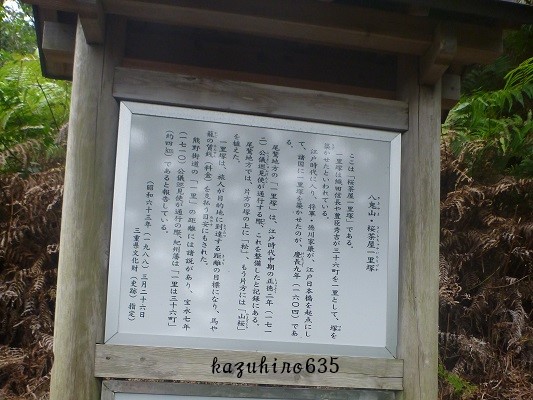 八鬼山・桜茶屋一里塚
ここは「桜茶屋一里塚」である。
一里塚は織田信長や豊臣秀吉が三十六町を一里として、塚を
築かせたといわれている。
江戸時代に入り、将軍・徳川家康が、江戸日本橋を起点にし
て、諸国に一里塚を築かせたのが、慶長九年（一六〇四）であ
る。
尾鷲地方の「一里塚」は、江戸時代中期の正徳二年（一七一
二）公儀巡見使が通行する際、これを整備したと記録にある。
尾鷲地方では、片方の塚の上に「松」、もう片方には「山桜」
を植えた。
一里塚は、旅人が目的地に到達する距離の目標になり、馬や
籠の賃銭（料金）を支払う目安にもされた。
熊野街道の「一里」の距離には諸説があり、宝永七年
（一七一〇）公儀巡見使が通行の際、紀州藩は「一里は三十六町」
（約四粁）であると報告している。
（昭和六十三年（一九八八）三月二十六日
三重県文化財（史跡）指定）
kazuhiro635